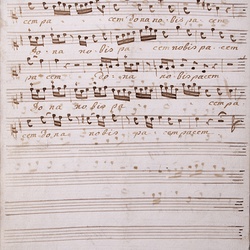 cem pa cem do na no bis pa cem
do na no bis pa cem no bis pa cem
pa cem do na no bis pacem
do na no bis pa cem pa
cem do na no bis pa cem pacem